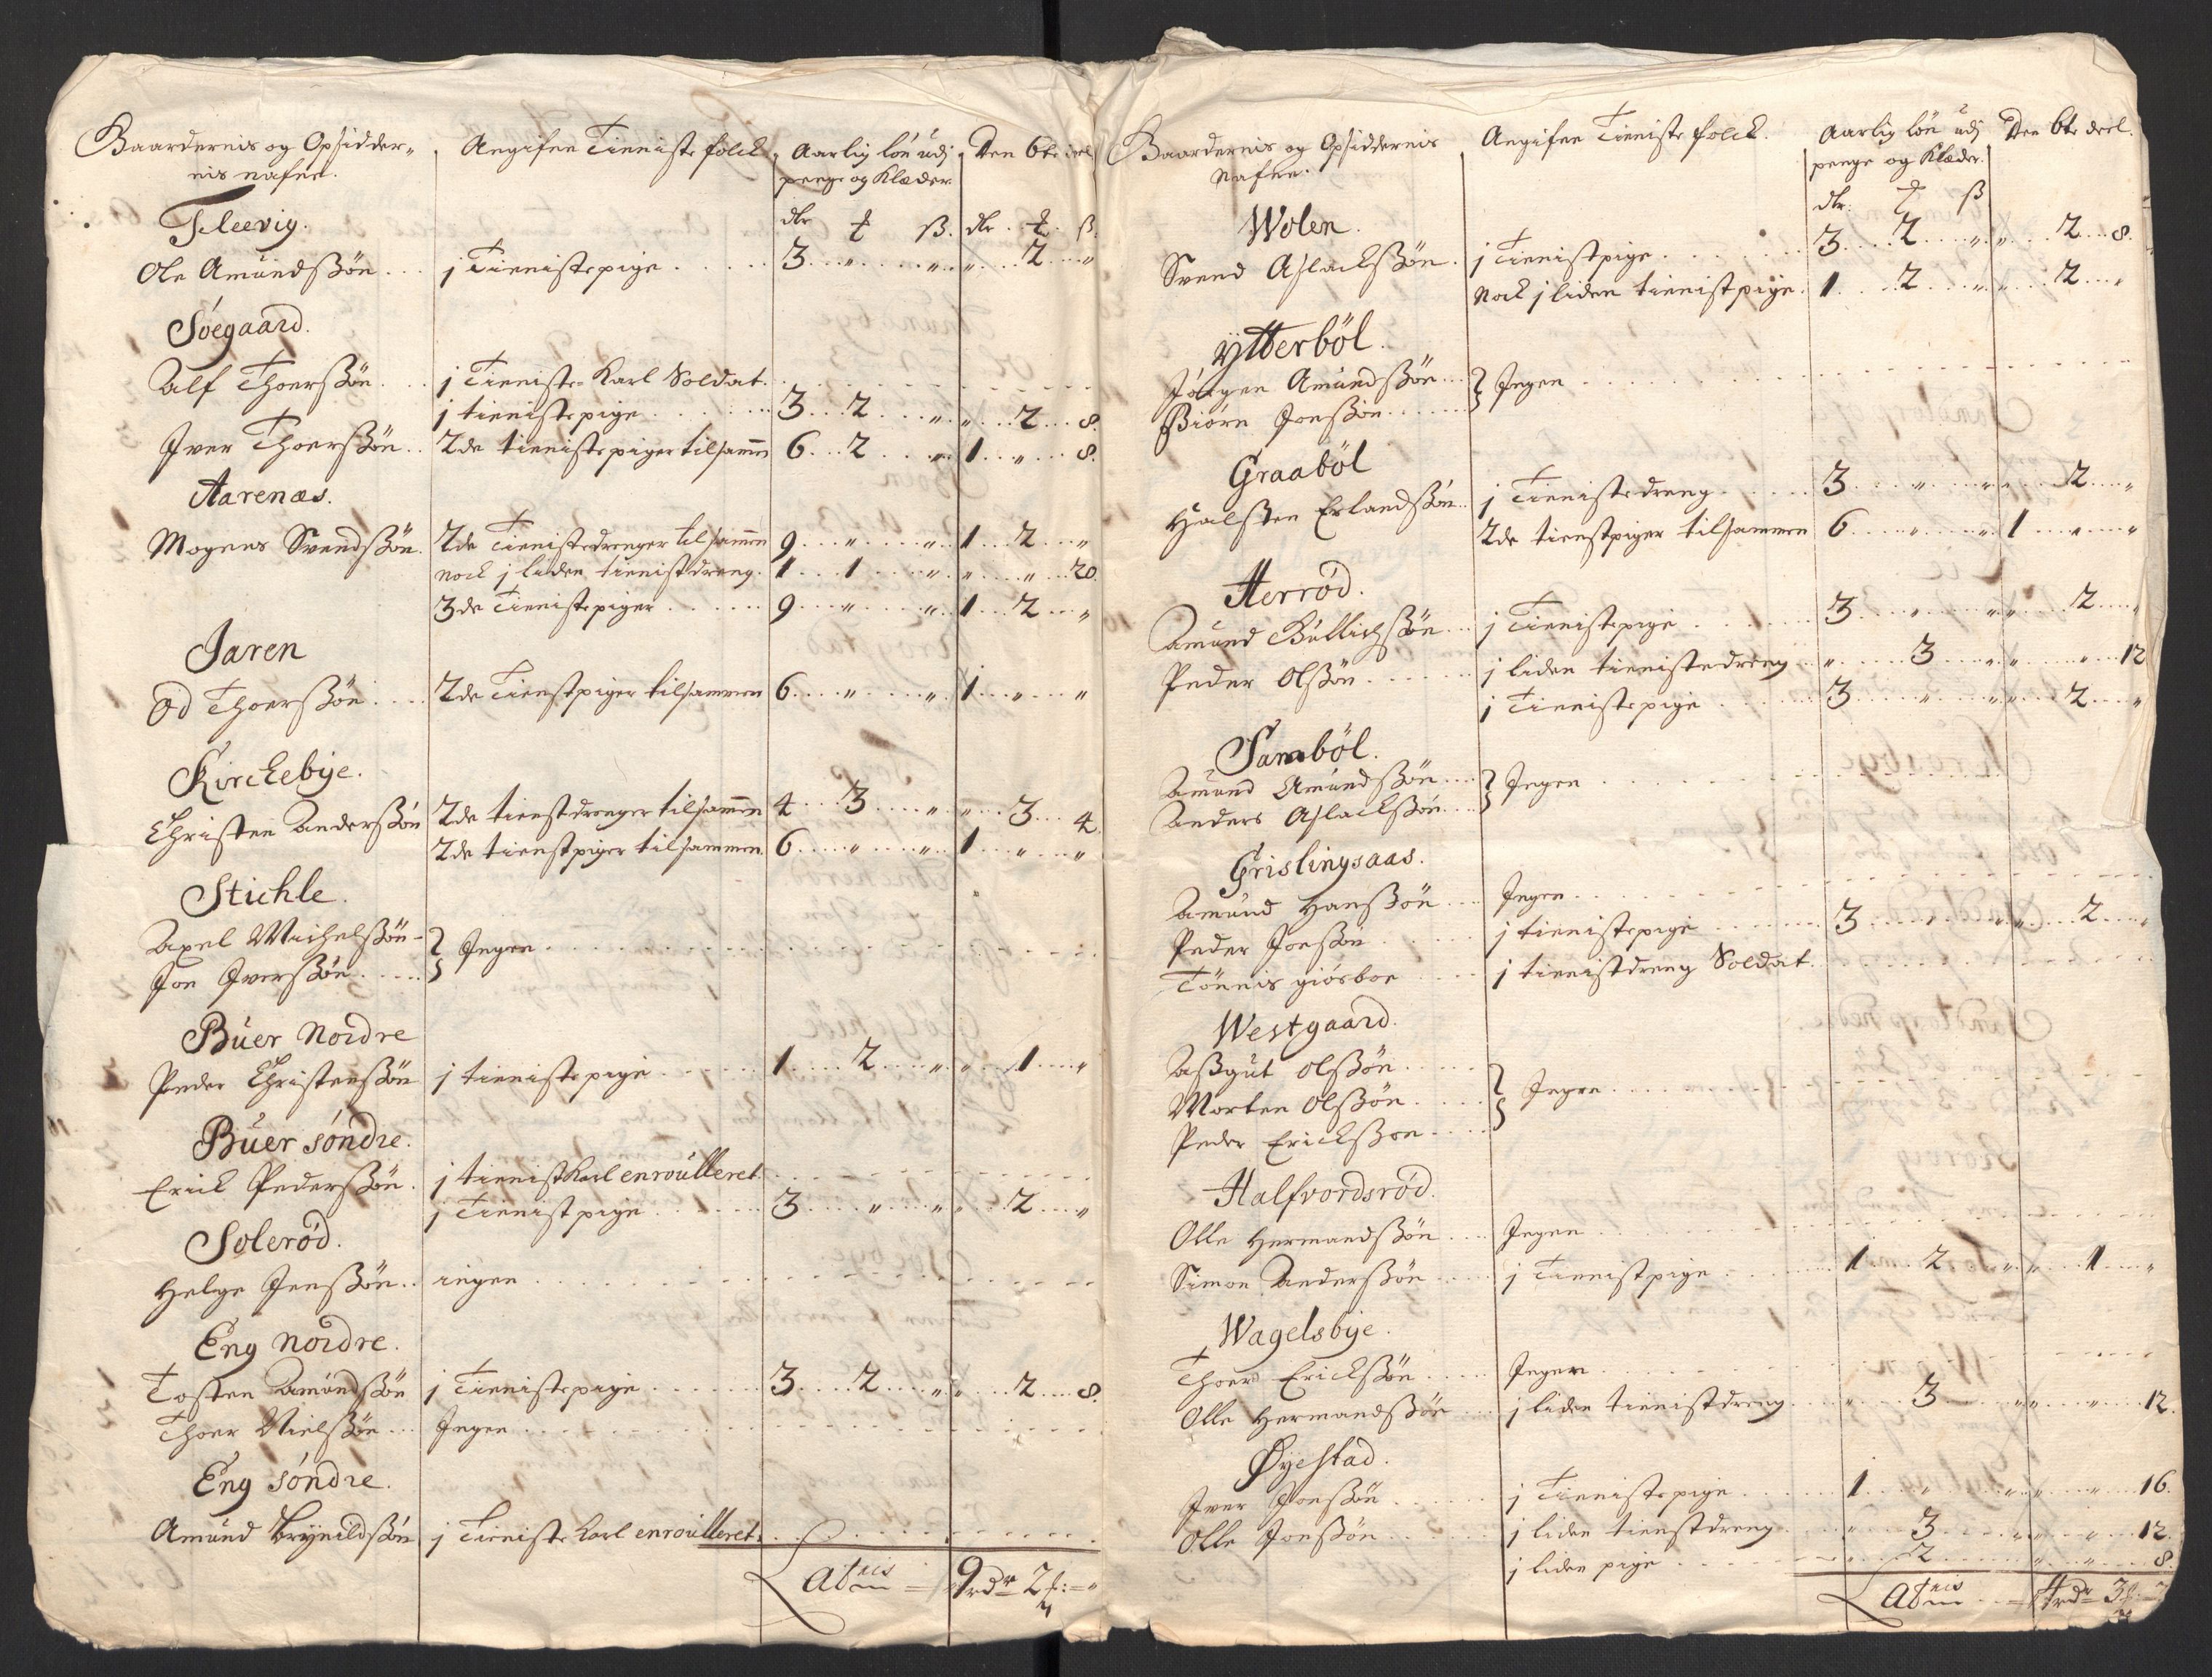 Gaardernis og Opsidder-
nis nafne.
Angifne Tieniste folck
Aarlig lön udj
penge og Klæder
Den 6te deel
dlr ß. dlr ß.
Fleevig.
Ole Amundßön ... j Tienistepige ..... 3 .. „ .. „ „ .. 2 .. „
Söegaard.
Alf Thoerßön .. j Tieniste-Karl Soldat.
j tienistepige ...... 3 .. 2 .. „ „ .. 2 .. 8.
Iver Thoerßön .. 2de tienistepiger tilsamn 6 .. 2 .. „ 1 .. „ .. 8.
Aarenæs.
Mogens Svendßön. 2de Tienistedrenger tilsamen 9 .. „ .. „ 1 .. 2 .. „
nock j liden tienistdreng. 1 .. 1 .. „ „ .. „ .. 20.
3de Tienistepiger ...... 9 .. „ .. „ 1 .. 2 .. „
Jaren
Od Thoerßön .... 2de Tienstpiger tilsammen 6 .. „ .. „ 1 .. „ .. „
Kirckebye.
Christen Anderßön 2de tienstdrenger tilsamen 4 .. 3 .. „ „ .. 3 .. 4.
2de tienstpiger tilsammen. 6 .. „ .. „ 1 .. „ .. „
Stichle.
Axel Michelßön -
Jon Iverßön ..... } Ingen ..........
Buer Nordre
Peder Christenßön j tienistepige ...... 1 .. 2 .. „ „ .. 1 .. „
Buer söndre.
Erick Pederßön . j tienistkarl enroulleret.
j Tienistpige ...... 3 .. „ .. „ „ .. 2 .. „
Solerød.
Helge Jenßön .. ingen ..........
Eng nordre.
Tosten Amundßön j Tienistepige ...... 3 .. 2 .. „ „ .. 2 .. 8.
Thoer Nielßön ... Ingen ..........
Eng söndre.
Amund Brynildßön j Tieniste karl enroulleret.
Latris = 9 rdr 2
Gaardernis og Opsiddernis
Nafne.
Angifne Tieniste folck.
Aarlig lön udj
penge og Klæder.
Den 6te deel.
dlr. ß
Wolen.
Svend Aslackßön. j Tienistpige ...... 3 .. 2 .. „ „ .. 2 .. 8.
Nock j liden tienistpige. 1 .. 2 .. „ „ .. 2 .. „
Ytterböl.
Jörgen Amundßön ...
Biörn Jonßön ...... } Ingen ..........
Graaböl
Halsten Erlandßön .. j Tienistedreng ..... 3 .. „ .. „ „ .. 2 .. „
2de tienstpiger tilsammen 6 .. „ .. „ 1 .. „ .. „
Herröd.
Amund Gullichßön ... j Tienistepige ...... 3 .. „ .. „ „ .. 2 .. „
Peder Olßön ...... j liden tienistedreng .. „ .. 3 .. „ „ .. „ .. 12
j Tienistepige ..... 3 .. „ .. „ „ .. 2 .. „
Samböl.
Amund Amundßön ....
Anders Aslackßön ... } Ingen ..........
Grislingsaas.
Amund Hanßön ... Ingen ..........
Peder Jonßön ..... j tienistepige ...... 3 .. „ .. „ „ .. 2 .. „
Tönnis giösboe .... j tienistdreng Soldat.
Westgaard.
Aßgut Olßön .....
Morten Olßön ....
Peder Erickßon .... } Ingen ..........
Halfvordsröd.
Olle Hermandßön .... Ingen ..........
Simon Anderßön .... j Tienistpige ...... 1 .. 2 .. „ „ .. 1 .. „
Wagelsbye.
Thoer Erickßön ..... Ingen ..........
Olle Hermandßön ... j liden tienistdreng .. „ .. 3 .. „ „ .. „ .. 12.
Øyestad.
Iver Jonßön ...... j Tienistepige ...... 1 .. „ .. „ „ .. „ .. 16.
Olle Jonßön ...... j liden tienstdreng .. „ .. 3 .. „ „ .. „ .. 12.
j liden pige ...... „ .. 2 .. „ „ .. „ .. 8.
Latris = 4 rdr 3